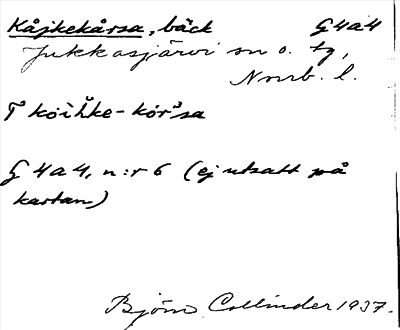 Kåjkekårsa, bäck G4a4
Jukkasjärvi sn o. tg,
Nmrb. l.
koi̯ˈke-kórˈsa
G 4a4, n:r 6 (ej utsatt på
kartan)
Björn Collinder 1937.